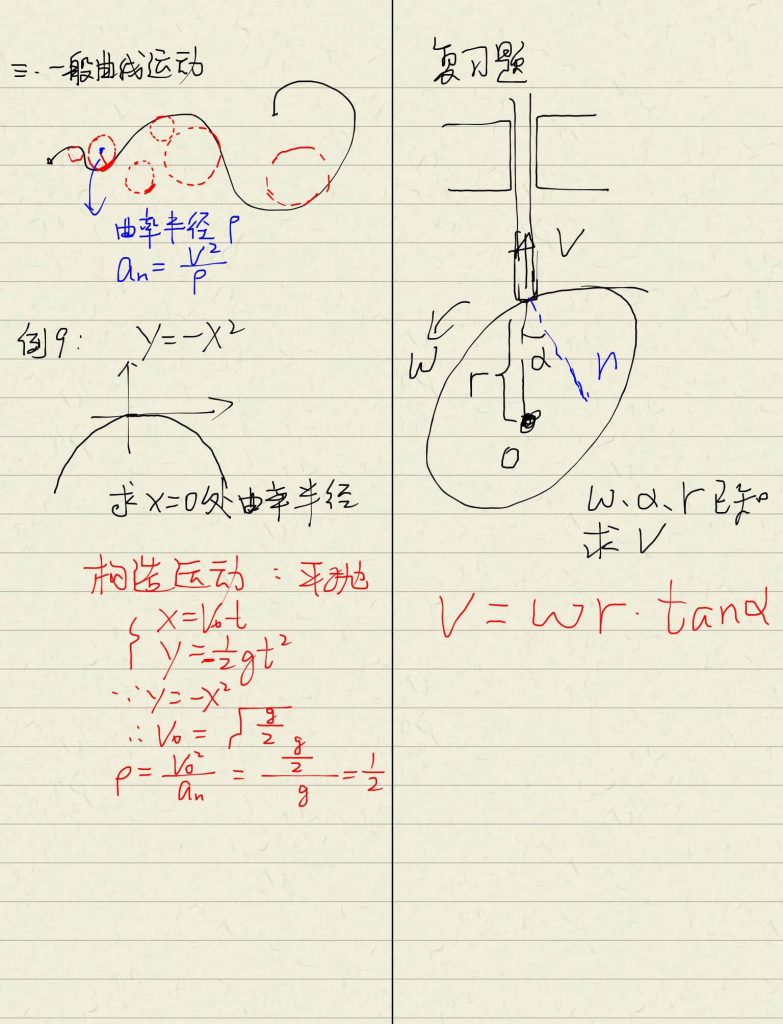 三. 一般曲线运动
曲率半径 ρ
an = V²/ρ
例9: y=-x²
求 x=0处曲率半径
构造运动: 平抛
{ x=V₀t
y=-½gt²
∵ y=-x²
∴ V₀ = √(g/2)
ρ = V₀²/an = (g/2)/g = 1/2
复习题
V
ω
r
α
n
O
ω、α、r已知
求 V
V = ωr·tanα